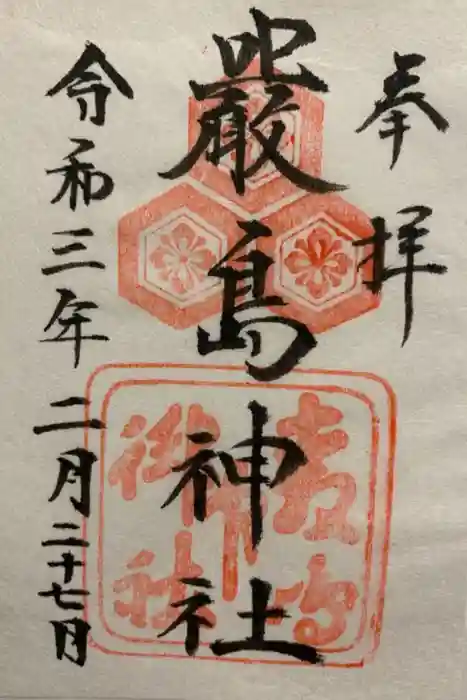 奉拝
嚴島神社
令和三年二月二十七日